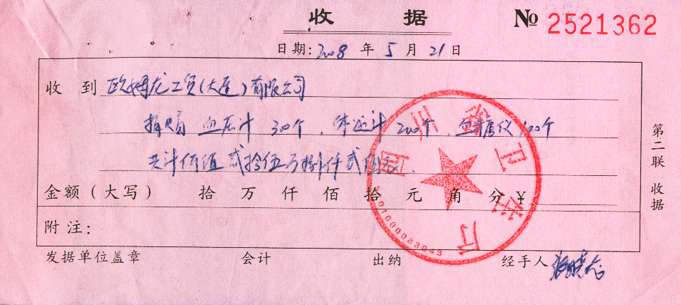 收 据
№ 2521362
日期：2008 年 5 月 21 日
收 到 欧姆龙工贸(大连)有限公司
捐赠 血压计 300个，体温计 200个，血糖仪 100个
共计价值 贰拾伍万捌仟贰佰
金额（大写） 拾 万 仟 佰 拾 元 角 分 ￥
附 注：
发据单位盖章 会计 出纳 经手人
第二联 收据
四川省卫生厅